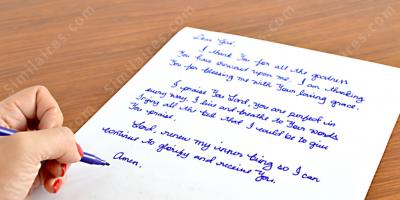 Dear God,
I thank You for all the goodness
You have bestowed upon me. I am thanking
You for blessing me with Your loving grace.
I praise You Lord, You are perfect in
every way. I live and breathe to Your words
trying all the best that I could be to give
You praise.
Lord, renew my inner being so I can
continue to glorify and receive You.
Amen.